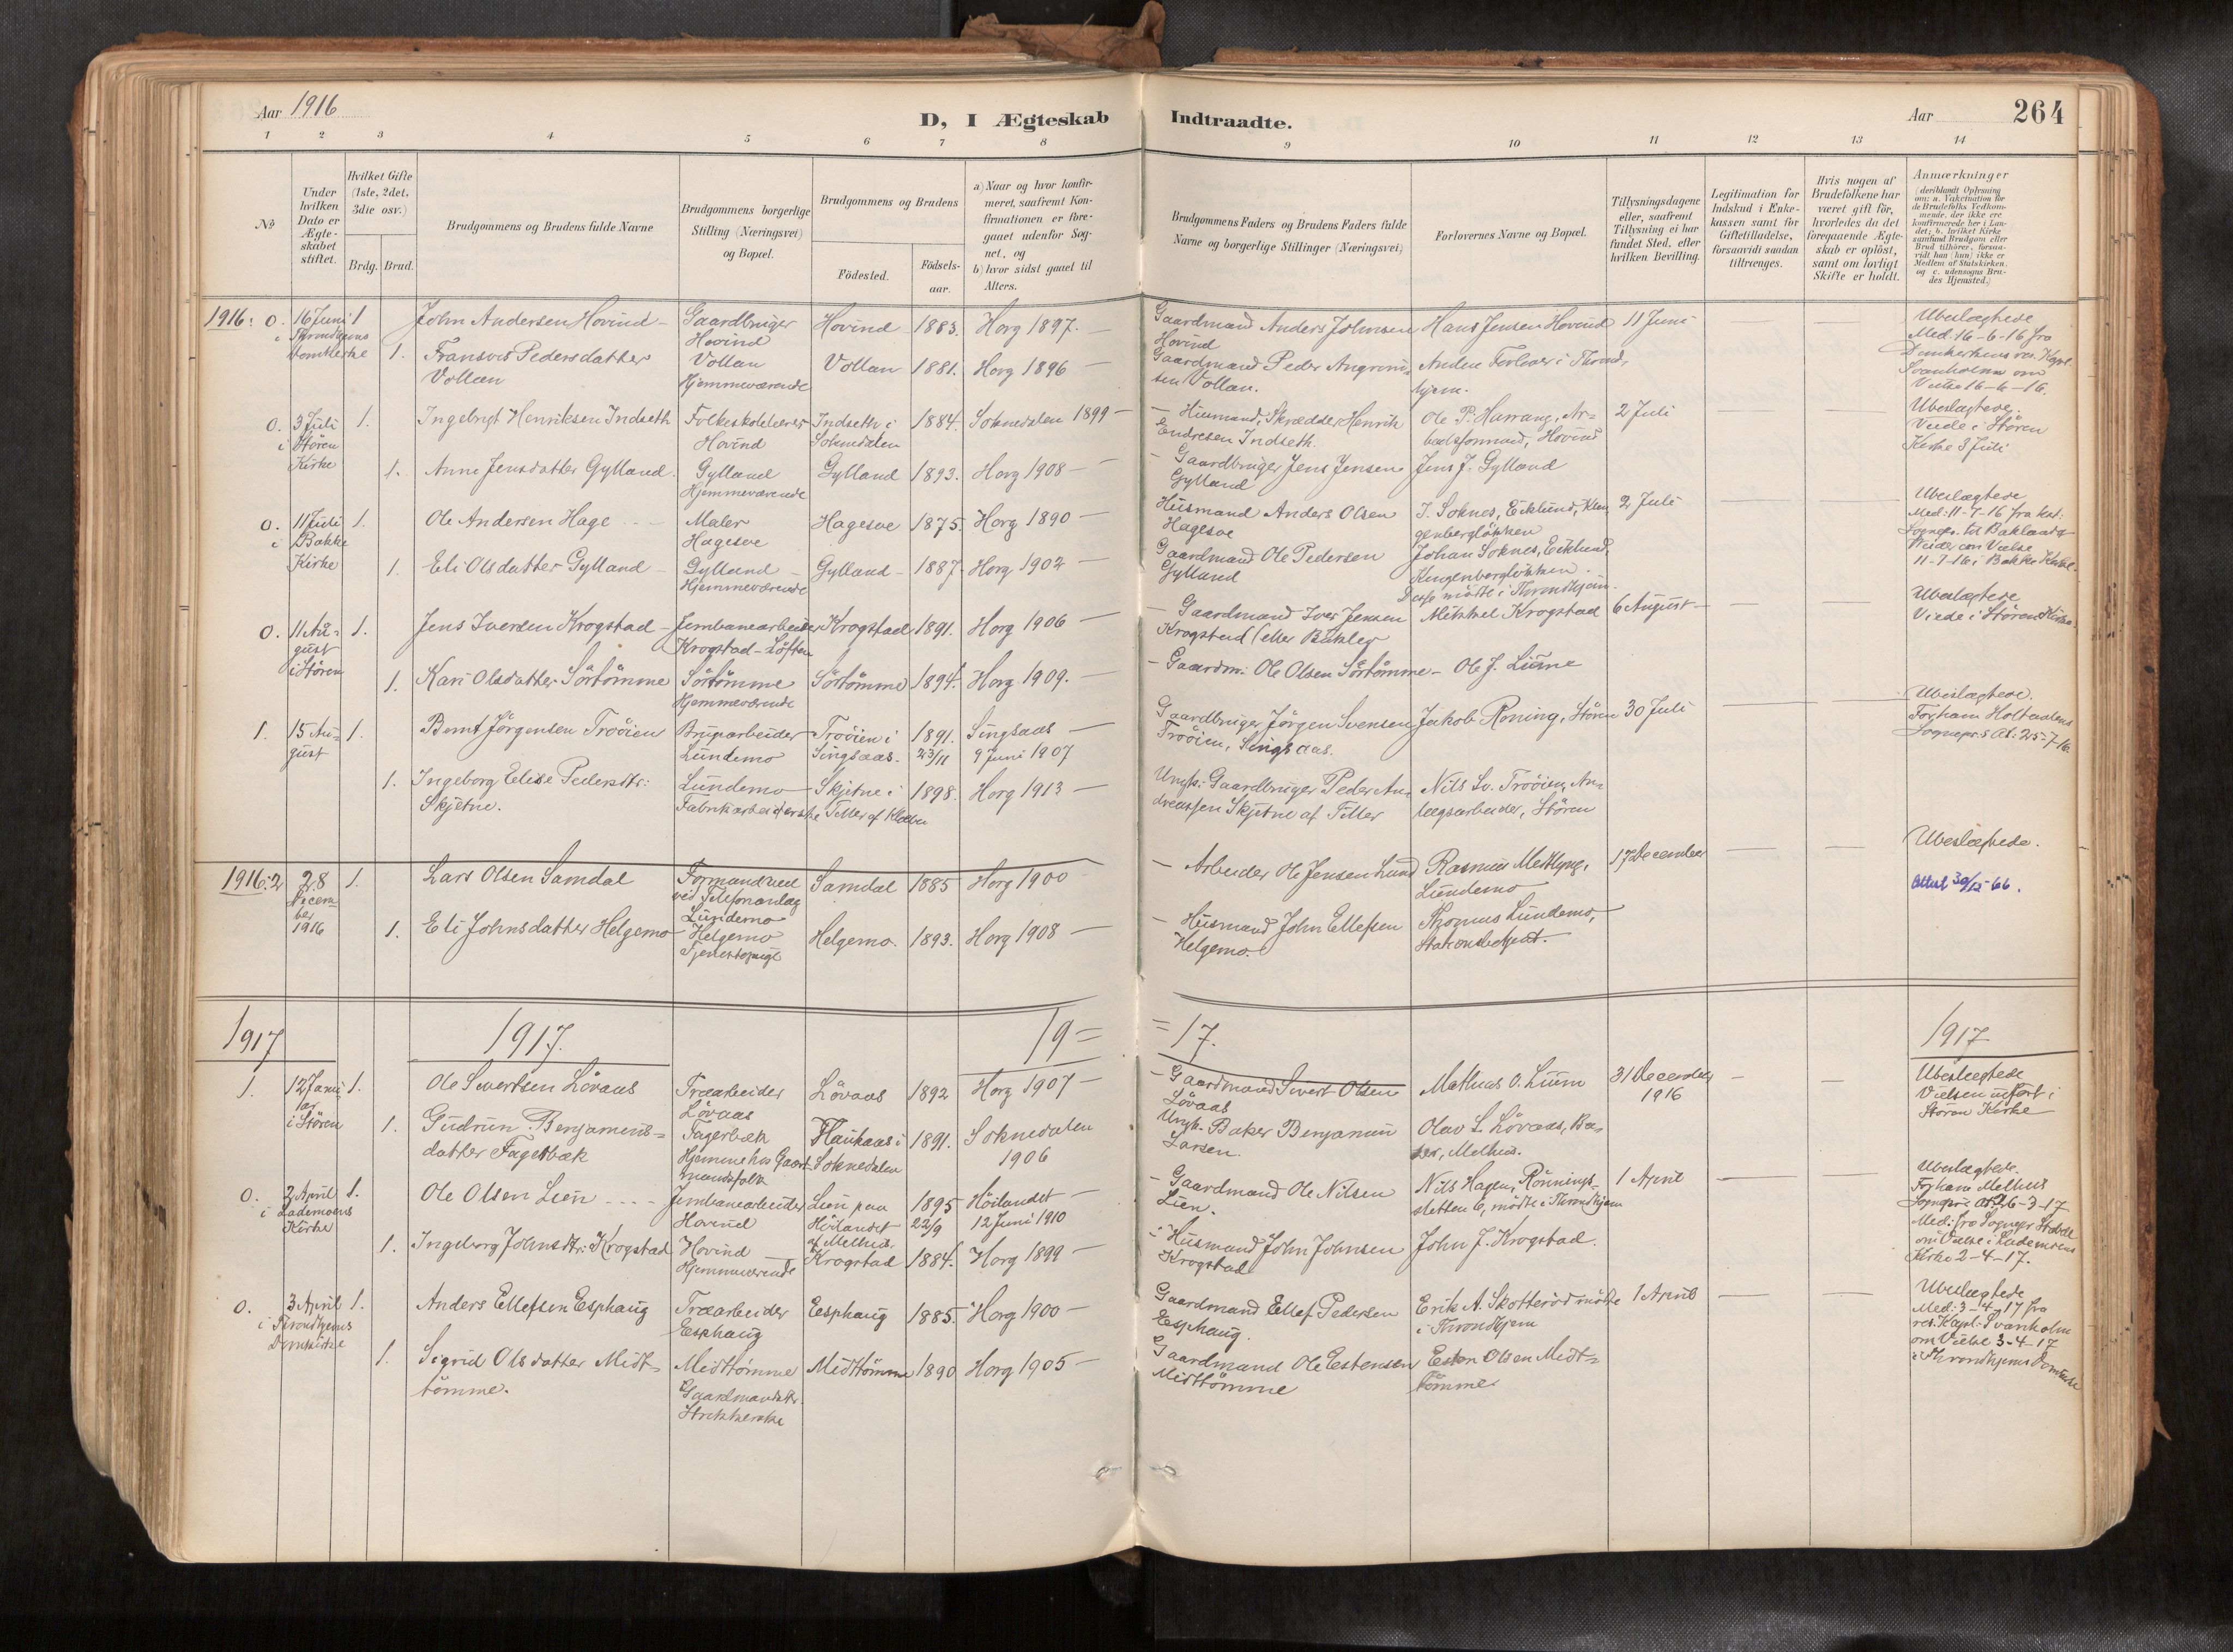 Aar 1916
D, I Ægteskab
Indtraadte.
Aar
264
1 2 3 4 5 6 7 8
9 10 11 12 13 14
No
Under
hvilken
Dato er
Ægte-
skabet
stiftet.
Hvilket Gifte
(1ste, 2det,
3die osv.)
Brdg. Brud.
Brudgommens og Brudens fulde Navne
Brudgommens borgerlige
Stilling (Næringsvei)
og Bopæl.
Brudgommens og Brudens
Födested.
Födsels-
aar.
a) Naar og hvor konfir-
meret, saafremt Kon-
firmationen er fore-
gaaet udenfor Sog-
net, og
b) hvor sidst gaaet til
Alters.
Brudgommens Faders og Brudens Faders fulde
Navne og borgerlige Stillinger (Næringsvei)
Forlovernes Navne og Bopæl.
Tillysningsdagene
eller, saafremt
Tillysning ei har
fundet Sted, efter
hvilken Bevilling.
Legitimation for
Indskud i Enke-
kassen samt for
Giftetilladelse,
forsaavidt saadan
tiltrænges.
Hvis nogen af
Brudefolkene har
været gift för,
hvorledes da det
foregaaende Ægte-
skab er oplöst,
samt om lovligt
Skifte er holdt.
Anmærkninger
(deriblandt Oplysning
om: a. Vakcination for
de Brudefolks Vedkom-
mende, der ikke ere
konfirmerede her i Lan-
det; b. hvilket Kirke
samfund Brudgom eller
Brud tilhörer, forsaa-
vidt han (hun) ikke er
Medlem af Statskirken.
og c. udensogns Bru-
des Hjemsted.)
1916: 0. 16 Juni 1 John Andersen Hovind - Gaardbruger Hovind 1883. Horg 1897. -
i Throndhjems Hovind
Domkirke 1. Franses Pedersdatter Vollan Vollan 1881. Horg 1896 -
Vollan Hjemmeværende
Gaardmand Anders Johnsen Hans Jensen Hovind 11 Juni
Hovind
Gaardmand Peder
Vollan. hjem.
Ubeslægtede
Med. 16-6-16 fra
res. Kapl.
Svanholm om
Vielse 16-6-16.
0. 3 Juli 1. Ingebrigt Henriksen Indseth Folkeskolelærer Indseth i 1884. Soknedalen 1899 -
i Stören Hovind Soknedalen
Kirke 1. Anne Jensdatter Gylland. Gylland Gylland 1893. Horg 1908 -
Hjemmeværende
- Husmand, Skrædder Henrik Ole P. Harrang, Ar- 2 Juli
Endresen Indseth. beidsformand, Hovind
- Gaardbruger Jens Jensen Jens J. Gylland
Gylland
Ubeslægtede.
Viede i Stören
Kirke 3 Juli
0. 11 Juli 1. Ole Andersen Hage Maler Hagesve 1875. Horg 1890 -
i Bakke Hagesve
Kirke 1. Eli Olsdatter Gylland - Gylland - Gylland - 1887. Horg 1902 -
Hjemmeværende
Husmand Anders Olsen J. Soknes, Ecklund, Klin- 2 Juli
Hagesve genberglökken
Gaardmand Ole Pedersen Johan Soknes, Ecklund,
Gylland Klingenberglökken.
Disse mödte i Throndhjem.
Ubeslægtede
Med. 11-7-16 fra
Sognepr. til Baklandet
om Vielse
11-7-16 i Bakke Kirke.
0. 11 Au- 1. Jens Iversen Krogstad - Jernbanearbeider Krogstad 1891. Horg 1906 -
gust Krogstad - Löften
i Stören 1. Kari Olsdatter Sörtömme Sörtömme Sörtömme 1894. Horg 1909. -
Hjemmeværende
- Gaardmand Iver Jensen Mikkel Krogstad 6 August -
Krogstad
- Gaardm. Ole Olsen Sörtömme - Ole J.
Ubeslægtede
Viede i Stören Kirke.
1. 15 Au- 1. Bernt Jörgensen Troöien Bruarbeider Troöien i 1891. Singsaas -
gust Lundemo Singsaas. 23/11 9 Juni 1907
1. Ingeborg Elise Pedersdtr: Lundemo - Skjetne i 1898. Horg 1913 -
Skjetne. Fabrikarbeiderske Tiller af Klæbu
Gaardbruger Jörgen Svensen Jakob Roning, Stören 30 Juli
Troöien, Singsaas.
Ungk. Gaardbruger Peder An- Nils Sv. Troöien, An-
dreassen Skjetne af Tiller lægsarbeider, Stören
Ubeslægtede.
Holtaalens
Sognepr.s At. 25-7-16
1916: 2 28 1. Lars Olsen Samdal Formand ved Samdal 1885 Horg 1900
Decem- ved Telefonanlæg
ber Lundemo
1916 1. Eli Johnsdatter Helgemo - Helgemo Helgemo. 1893. Horg 1908 -
Tjenestepige
- Arbeider Ole Jensen Lund Rasmus Medlyng, 17 December
Lundemo
- Husmand John Ellefsen Thomas Lundemo,
Helgemo. Stationsbetjent.
Ubeslægtede.
Attest 30/12-66.
1917 1917. 19= =17. 1917
1. 12 Janu- 1. Ole Sivertsen Lövaas Træarbeider Lövaas 1892 Horg 1907 -
ar Lövaas
i Stören 1. Gudrun Benjamins- Fagerbæk Hauhaas i 1891. Soknedalen
datter Fagerbæk Hjemme hos Gaard- Soknedalen 1906
mandsfolk
- Gaardmand Sivert Olsen Mathias O. Lium 31 December
Lövaas 1916
Ungk. Baker Benjamin Olav S. Lövaas, Ba-
Larsen. ker, Melhus.
Ubeslægtede
Vielsen udfört i
Stören Kirke
0. 2 April 1. Ole Olsen Lien - - - - Jernbanearbeider Lien paa 1895 Höilandet -
i Lademoens Hovind Höilandet 22/9 12 Juni 1910
Kirke af Melhus.
1. Ingeborg Johnsdtr: Krogstad Hovind Krogstad 1884. Horg 1899 -
Hjemmeværende
- Gaardmand Ole Nilsen Nils Hagen, Rönnings- 1 April
Lien. sletten 6, mödte i Throndhjem
- Husmand John Johnsen John J. Krogstad.
Krogstad
Ubeslægtede.
Melhus
Sognepr. At. 26-3-17
Med. fra Sognepr.
om Vielse i Lademoens
Kirke 2-4-17.
0. 3 April 1. Anders Ellefsen Esphaug Træarbeider Eesphaug 1885. Horg 1900 -
i Throndhjems Esphaug
Domkirke 1. Sigrid Olsdatter Midt- Midttömme Midttömme 1890 Horg 1905 -
tömme. Gaardmandsdtr.
Strikkerske
Gaardmand Ellef Pedersen Erik A. Skotteröd mödte 1 April
Esphaug. i Throndhjem
Gaardmand Ole Estensen Esten Olsen Midt-
Midttömme tömme
Ubeslægtede
Med. 3-4-17 fra
res. Kapl. Svanholm
om Vielse 3-4-17
i Throndhjems Domkirke